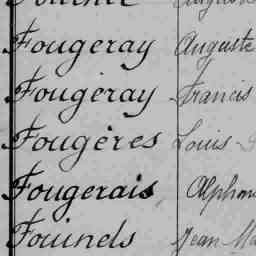 Fougeray Auguste
Fougéray Francis
Fougères Louis
Fougerais, Alphon
Fouinels Jean Ma